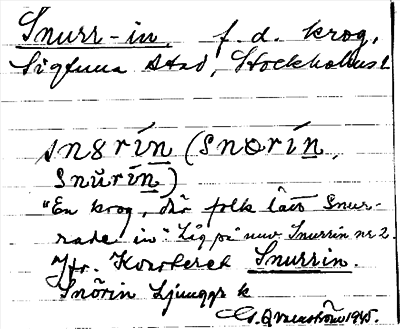 Snurr-in, f.d. krog,
Sigtuna stad, Stockholms l
snɞrín (snɵrín,
snŭrín)
"En krog, där folk lätt Snur-
rade in". Låg på nuv. Snurrin nr 2.
Jfr. Kvarteret Snurrin.
Snörin Ljunggr k
G. Qvarnström 1945.